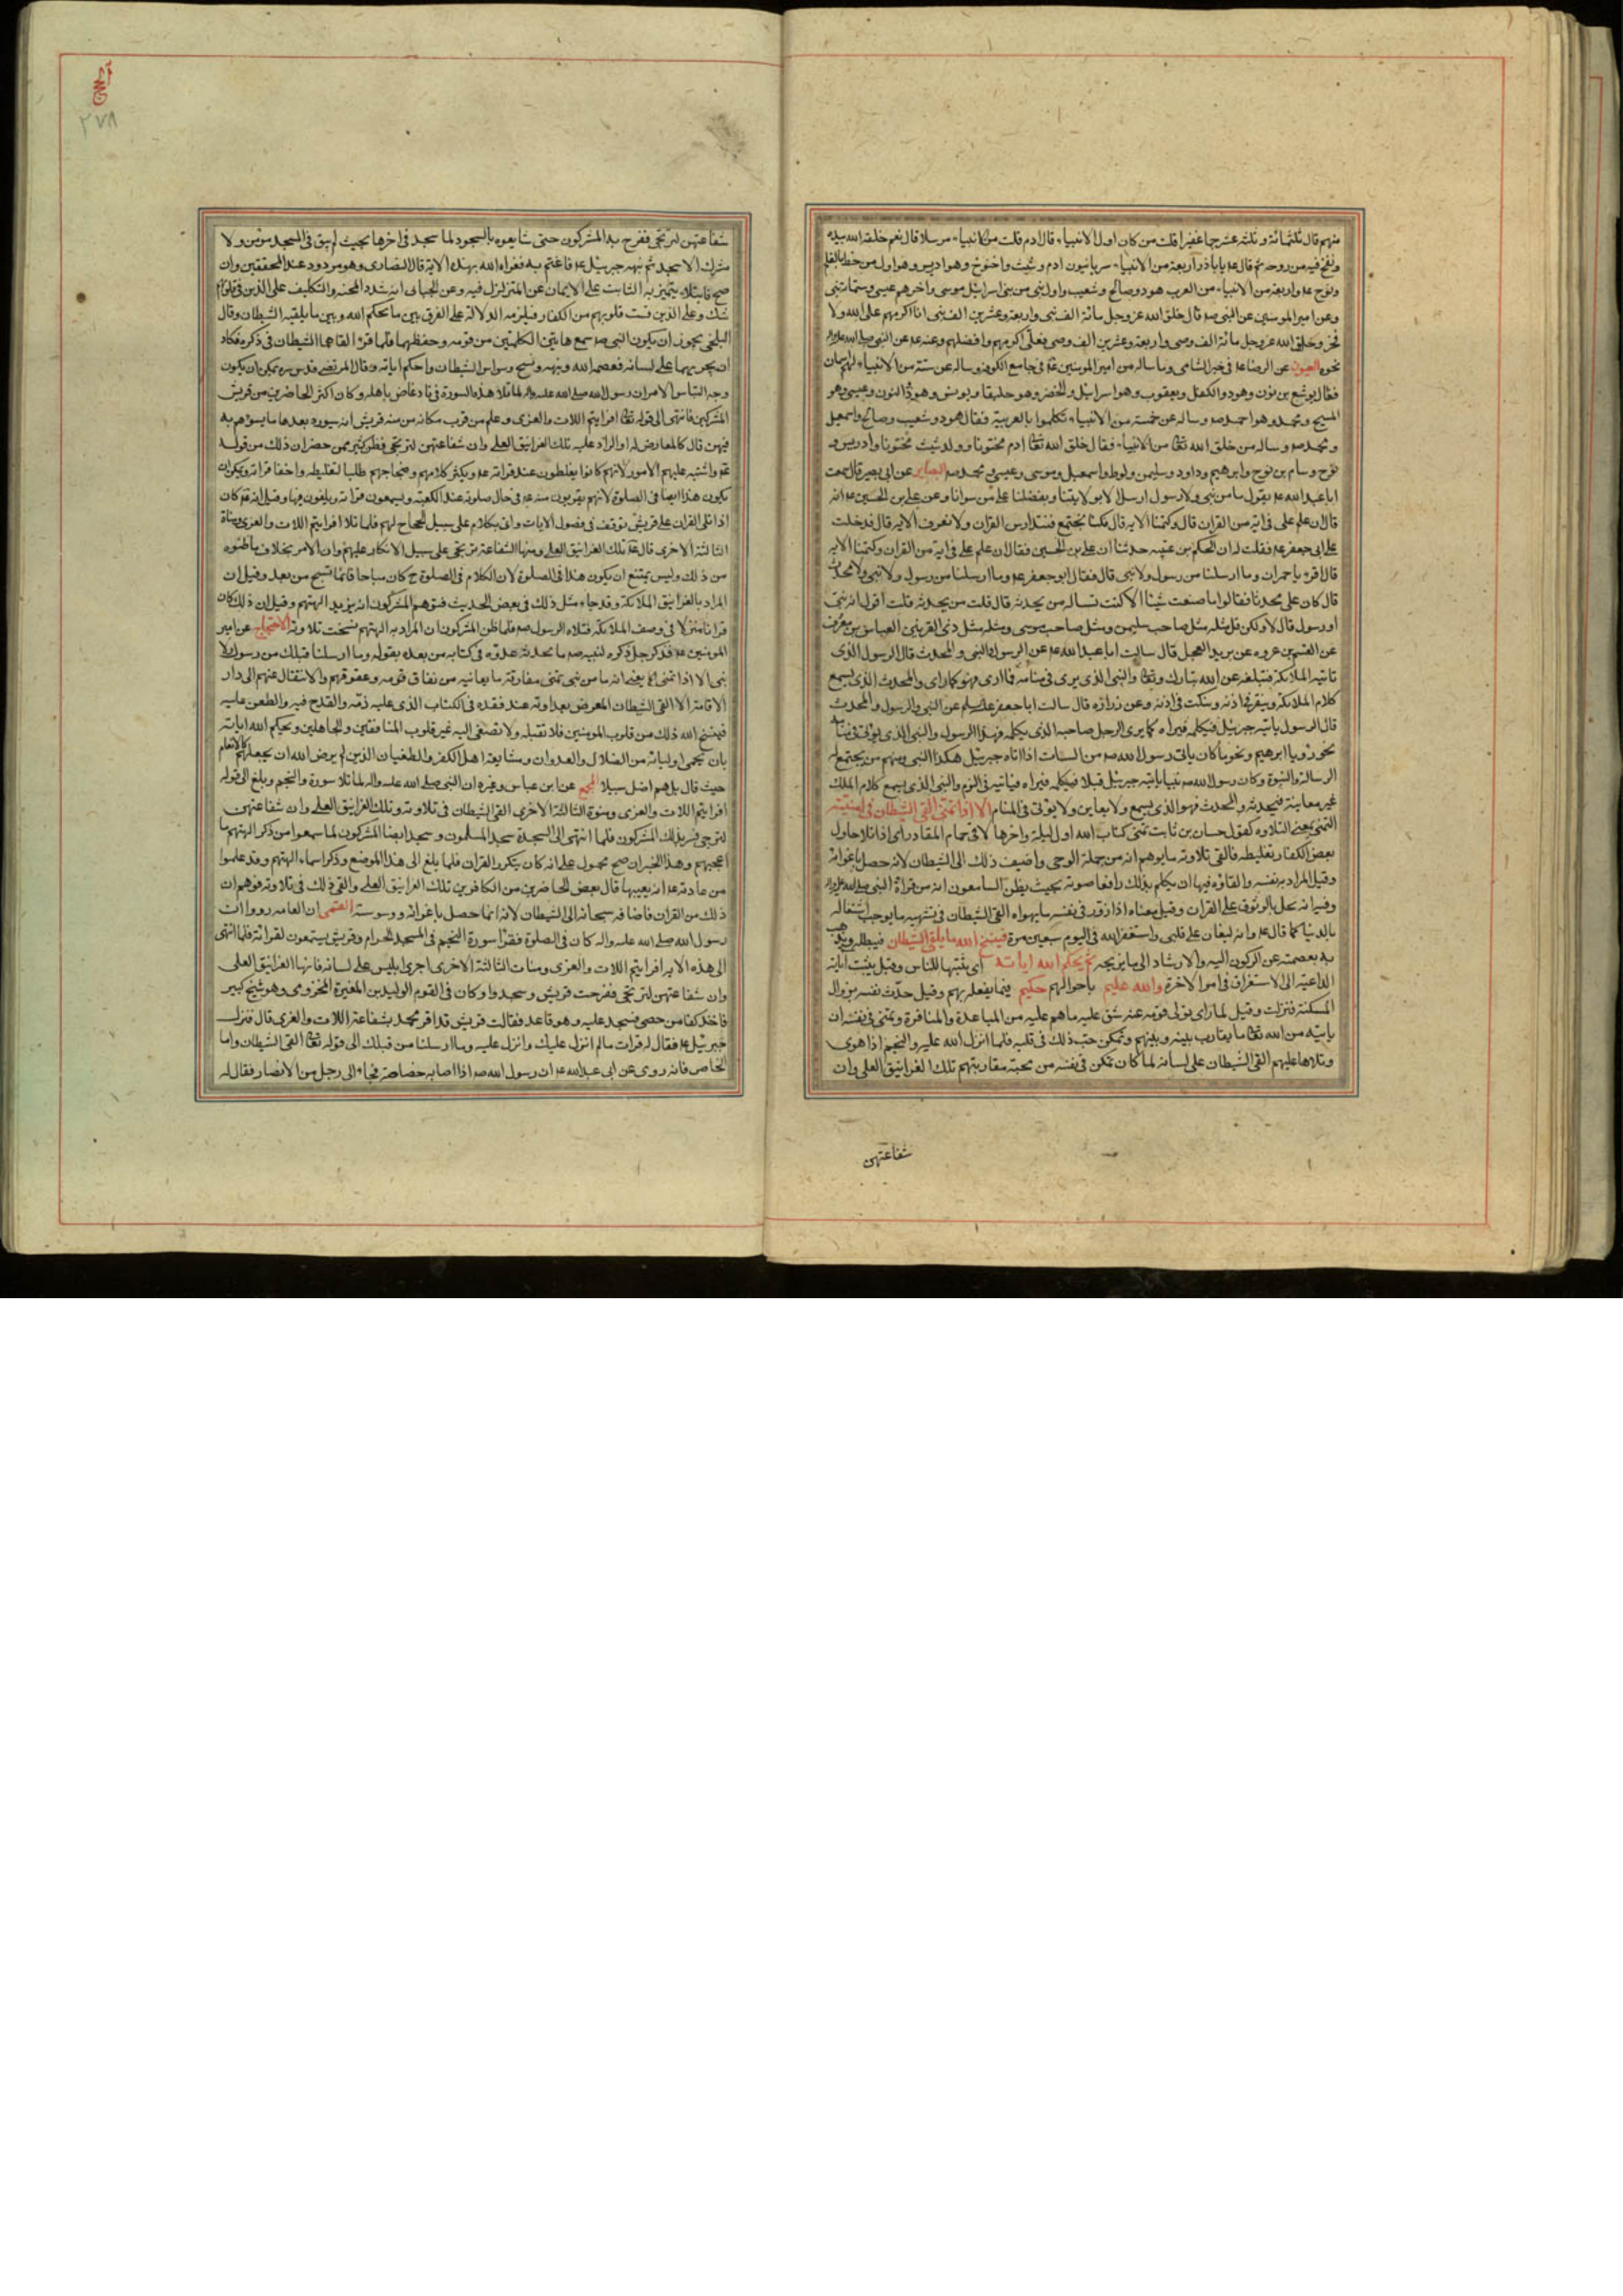 منهم قال ثلثمائة وثلثة عشر جما غفيرا قلت من كان اول الانبياء قال ادم قلت من الانبياء مرسلا قال نعم خلقه الله بيده
ونفخ فيه من روحه ثم قال ع يا باذر اربعة من الانبياء سريانيون ادم وشيث واخنوخ وهو ادريس وهو اول من خط بالقلم
ونوح ع واربعة من الانبياء من العرب هود وصالح وشعيب واول نبى من بنى اسرائيل موسى واخرهم عيسى وستمائة نبى
وعن امير المومنين عن النبى صم قال خلق الله عز وجل مائة الف نبى واربعة وعشرين الف نبى انا اكرمهم على الله ولا
فخر وخلق الله عز وجل مائة الف وصى واربعة وعشرين الف وصى فعلى اكرمهم وافضلهم وعنه ع عن النبى صلى الله عليه واله
نحوه العيون عن الرضا ع فى خبر الشامى وما ساله من امير المومنين ع فى جامع الكوفة وساله عن ستة من الانبياء لهم اسمان
فقال يوشع بن نون وهو ذو الكفل ويعقوب وهو اسرائيل والخضر وهو حليقا ويونس وهو ذا النون وعيسى وهو
المسيح ومحمد وهو احمد صم وساله عن خمسة من الانبياء تكلموا بالعربية فقال هود وشعيب وصالح واسمعيل
ومحمد صم وساله من خلق الله تعا من الانبياء فقال خلق الله تعا ادم مختونا وولد شيث مختونا وادريس و
نوح وسام بن نوح وابرهيم وداود وسليمن ولوط واسمعيل وموسى وعيسى ومحمد صم البصاير عن ابى بصير قال سمعت
ابا عبد الله ع يقول ما من نبى ولا رسول ارسل الا بولايتنا وبفضلنا على من سوانا وعن على بن الحسين ع انه
قال ان علم على فى اية من القران قال وكتمنا الاية قال فكنا نجتمع فنتدارس القران ولا نعرف الاية قال فدخلت
على ابى جعفر ع فقلت له ان الحكم بن عتيبه حدثنا ان على بن الحسين فقال ان علم على فى اية من القران وكتمنا الاية
قال اقرء يا حمران وما ارسلنا من رسول ولا نبى قال فقال ابو جعفر ع وما ارسلنا من رسول ولا نبى ولا محدث
قال كان على محدثا فقالوا ما صنعت شيئا الا كنت تساله من يحدثه قال قلت من يحدثه قلت اقول انه نبى
او رسول قال لا ولكن قل مثله مثل صاحب سليمن ومثل صاحب موسى ومثله مثل ذى القرنين العباس بن معروف
عن القسم بن عروه عن بريد العجلى قال سالت ابا عبد الله ع عن الرسول والنبى والمحدث قال الرسول الذى
تاتيه الملائكة فتبلغه عن الله تبارك وتعا والنبى الذى يرى فى منامه فما ارى فهو كما راى والمحدث الذى يسمع
كلام الملائكة وينقر فى اذنه وينكت فى اذنه وعن زرارة قال سالت ابا جعفر عليه السلام عن النبى والرسول والمحدث
قال الرسول ياتيه جبرئيل فيكلمه فيراه كما يرى الرجل صاحبه الذى يكلمه فهذا الرسول والنبى الذى يؤتى فى منامه
نحو رؤيا ابرهيم ونحو ما كان ياتى رسول الله صم من السبات اذا اتاه جبرئيل هكذا النبى ومنهم من يجتمع له
الرسالة والنبوة وكان رسول الله صم نبيا ياتيه جبرئيل قبلا فيكلمه فيراه وياتيه فى النوم والنبى الذى يسمع كلام الملك
غير معاينة فيحدثه والمحدث فهو الذى يسمع ولا يعاين ولا يؤتى فى المنام الا اذا تمنى القى الشيطان فى امنيته
التمنى بمعنى التلاوه كقول حسان بن ثابت تمنى كتاب الله اول ليلة واخرها لاقى حمام المقادر اى اذا تلا حاول
بعض الكفار تغليطه فالقى تلاوته ما يوهم انه من جملة الوحى واضيف ذلك الى الشيطان لانه حصل باغوائه
وقيل المراد به نفسه والقاؤه فيها ان يتكلم بذلك رافعا صوته بحيث يظن السامعون انه من قراءة النبى صلى الله عليه واله
وفيه انه يخل بالوثوق على القران وقيل معناه اذا زور فى نفسه ما يهواه القى الشيطان فى تشهيه ما يوجب اشتغاله
بالدنيا كما قال ع وانه ليغان على قلبى واستغفر الله فى اليوم سبعين مرة فينسخ الله ما يلقى الشيطان فيبطله ويذهب
به بعصمته عن الركون اليه والارشاد الى ما يزيحه ثم يحكم الله اياته اى يثبتها للناس وقيل يثبت اياته
الداعية الى الاستغراق فى امر الاخرة والله عليم باحوالهم حكيم فيما يفعله بهم وقيل حدث نفسه بزوال
المسكنة فنزلت وقيل لما راى تولى قومه عنه شق عليه ما هم عليه من المباعدة والمنافرة وتمنى فى نفسه ان
ياتيه من الله تعا ما يقارب بينه وبينهم وتمكن حب ذلك فى قلبه فلما انزل الله عليه والنجم اذا هوى
وتلاها عليهم القى الشيطان على لسانه لما كان تمكن فى نفسه من محبة مقاربتهم تلك الغرانيق العلى وان
شفاعتهن
٢٧٨
شفاعتهن لترتجى ففرح به المشركون حتى شايعوه بالسجود لما سجد فى اخرها بحيث لم يبق فى المسجد مومن ولا
مشرك الا سجد ثم نبهه جبرئيل ع فاغتم به فعزاه الله بهذه الاية قال البيضاوى وهو مردود عند المحققين وان
صح فابتلاء يتميز به الثابت على الايمان عن المتزلزل فيه وعن الجبائى انه شدد المحنه والتكليف على الذين فى قلوبهم
شك وعلى الذين قست قلوبهم من الكفار فيلزمه الدلالة على الفرق بين ما يحكم الله وبين ما يلقيه الشيطان وقال
البلخى يجوز ان يكون النبى صم سمع هاتين الكلمتين من قومه وحفظهما فلما قرء القاهما الشيطان فى ذكره فكاد
ان يجريهما على لسانه فعصمه الله ونبهه ونسخ وسواس الشيطان واحكم اياته وقال المرتضى قدس سره يمكن ان يكون
وجه التباس الامر ان رسول الله صلى الله عليه واله لما تلا هذه السورة فى ناد غاص باهله وكان اكثر الحاضرين من قريش
المشركين فانتهى الى قوله تعا افرايتم اللات والعزى وعلم من قرب مكانه من قريش انه سيورد بعدها ما يسؤهم به
فيهن قال كالمعارض له او الراد عليه تلك الغرانيق العلى وان شفاعتهن لترتجى فظن كثير ممن حضر ان ذلك من قوله
ع واشتبه عليهم الامور لانهم كانوا يغلطون عند قراءته ع ويكثر كلامهم وضجاجهم طلبا لتغليطه واخفاء قراءته ويمكن ان
يكون هذا ايضا فى الصلوة لانهم يقربون منه ع فى حال صلوته عند الكعبة ويسمعون قراءته ويلغون فيها وقيل انه ع كان
اذا تلى القران على قريش توقف فى فصول الايات واتى بكلام على سبيل الحجاج لهم فلما تلا افرايتم اللات والعزى ومناة
الثالثة الاخرى قال ع تلك الغرانيق العلى ومنها الشفاعة ترتجى على سبيل الانكار عليهم وان الامر بخلاف ما ظنوه
من ذلك وليس يمتنع ان يكون هذا فى الصلوة لان الكلام فى الصلوة ح كان مباحا وانما نسخ من بعد وقيل ان
المراد بالغرانيق الملائكة وقد جاء مثل ذلك فى بعض الحديث فتوهم المشركون انه يريد الهتهم وقيل ان ذلك كان
قرانا منزلا فى وصف الملائكة فتلاه الرسول صم فلما ظن المشركون ان المراد به الهتهم نسخت تلاوته الاحتجاج عن امير
المومنين ع فذكر جل ذكره لنبيه صم ما يحدثه عدوه فى كتابه من بعده بقوله وما ارسلنا قبلك من رسول ولا
نبى الا اذا تمنى الخ يعنى انه ما من نبى تمنى مفارقة ما يعانيه من نفاق قومه وعقوقهم والانتقال عنهم الى دار
الاقامة الا القى الشيطان المعرض بعداوته عند فقده فى الكتاب الذى عليه ذمه والقدح فيه والطعن عليه
فينسخ الله ذلك من قلوب المومنين فلا تقبله ولا تصغى اليه غير قلوب المنافقين والجاهلين ويحكم الله اياته
بان يحمى اوليائه من الضلال والعدوان ومشايعة اهل الكفر والطغيان الذين لم يرض الله ان يجعلهم كالانعام
حيث قال بل هم اضل سبيلا المجمع عن ابن عباس وغيره ان النبى صلى الله عليه واله لما تلا سورة والنجم وبلغ الى قوله
افرايتم اللات والعزى ومنوة الثالثة الاخرى القى الشيطان فى تلاوته وتلك الغرانيق العلى وان شفاعتهن
لترجى فسر بذلك المشركون فلما انتهى الى السجدة سجد المسلمون وسجد ايضا المشركون لما سمعوا من ذكر الهتهم ما
اعجبهم وهذا الخبر ان صح محمول على انه كان يتكرر القران فلما بلغ الى هذا الموضع وذكر اسماء الهتهم وقد علموا
من عادته ع انه يعيبها قال بعض الحاضرين من الكافرين تلك الغرانيق العلى والقى ذلك فى تلاوته فوهم ان
ذلك من القران فاضافه سبحانه الى الشيطان لانه انما حصل باغوائه ووسوسته القمى ان العامه رووا ان
رسول الله صلى الله عليه واله كان فى الصلوة فقرا سورة النجم فى المسجد الحرام وقريش يستمعون لقراءته فلما انتهى
الى هذه الاية افرايتم اللات والعزى ومنات الثالثة الاخرى اجرى ابليس على لسانه فانها الغرانيق العلى
وان شفاعتهن لترتجى ففرحت قريش وسجدوا وكان فى القوم الوليد بن المغيرة المخزومى وهو شيخ كبير
فاخذ كفا من حصى فسجد عليه وهو قاعد فقالت قريش قد اقر محمد بشفاعة اللات والعزى قال فنزل
جبرئيل ع فقال له قرات ما لم انزل عليك وانزل عليه وما ارسلنا من قبلك الى قوله تعا القى الشيطان واما
الخاص فانه روى عن ابى عبد الله ع ان رسول الله صم اذا اصابه خصاصة فجاء الى رجل من الانصار فقال له